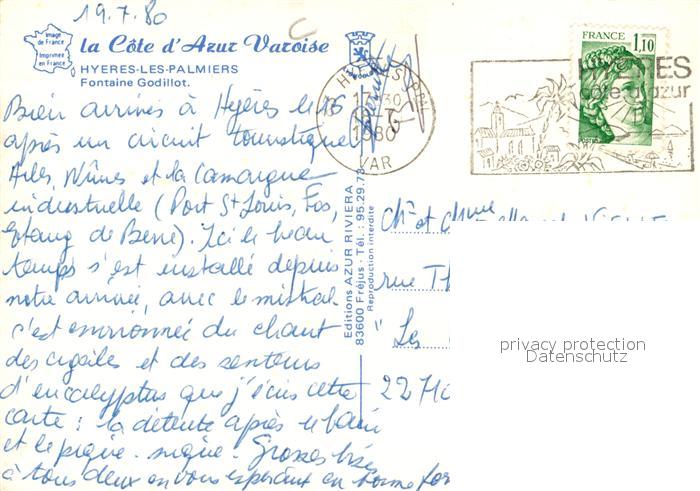 19.7.80
Image
de France
Imprimée
en France
la Côte d'Azur Varoise
HYERES-LES-PALMIERS
Fontaine Godillot.
FRANCE
1,10
POSTES
1980
VAR
côte d'azur
Bien arrivés à Hyères le 16
après un circuit touristique
Arles, Nîmes et la Camargue
industrielle (Port St Louis, Fos,
Etang de Berre). Ici le beau
temps s'est installé depuis
notre arrivée, avec le mistral
c'est environnée du chant
des cigales et des senteurs
d'eucalyptus que j'écris cette
carte : la détente après le bain
et le pique-nique. Grosses bises
à tous deux en vous espérant en bonne
Editions AZUR RIVIERA
83600 Fréjus - Tél. : 95.29.73
Reproduction interdite
Mr et Mme
rue
" Les
privacy protection
Datenschutz